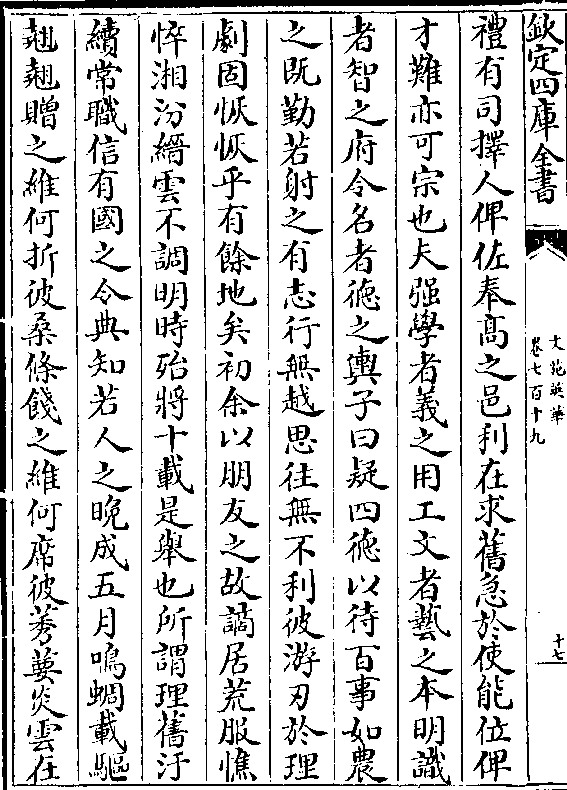 欽定四庫全書
文苑英華
卷七百十九
十七
禮有司擇人俾佐奉髙之邑利在求舊急於使能位俾
才難亦可宗也夫强學者義之用工文者藝之本明識
者智之府令名者德之輿子曰疑四德以待百事如農
之既勤若射之有志行無越思往無不利彼游刃於理
劇固恢恢乎有餘地矣初余以朋友之故謫居荒服憔
悴湘汾縉雲不調明時殆將十載是舉也所謂理舊汙
續常職信有國之令典知若人之晚成五月鳴蜩載驅
翹翹贈之維何折彼桑條餞之維何席彼蒡蔞炎雲在